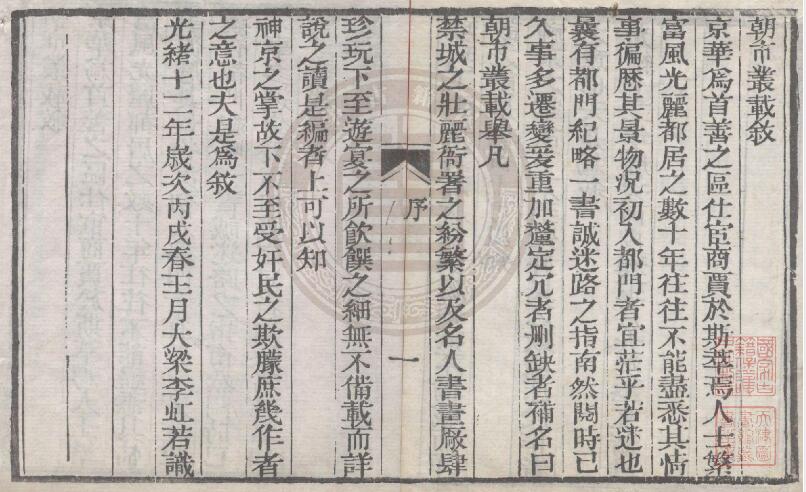 朝市叢載敘
京華為首善之區仕宦商賈於斯萃焉人士繁
富風光麗都居之數十年往往不能盡悉其情
事徧歷其景物況初入都門者宜茫乎若迷也
曩有都門紀略一書誠迷路之指南然閱時已
久事多遷變爰重加釐定冗者刪缺者補名曰
朝市叢載舉凡
禁城之壯麗衙署之紛繁以及名人書畫廠肆
序
一
珍玩下至遊宴之所飲饌之細無不備載而詳
說之讀是編者上可以知
神京之掌故下不至受奸民之欺朦庶幾作者
之意也夫是為敘
光緒十二年歲次丙戌春王月大梁李虹若識